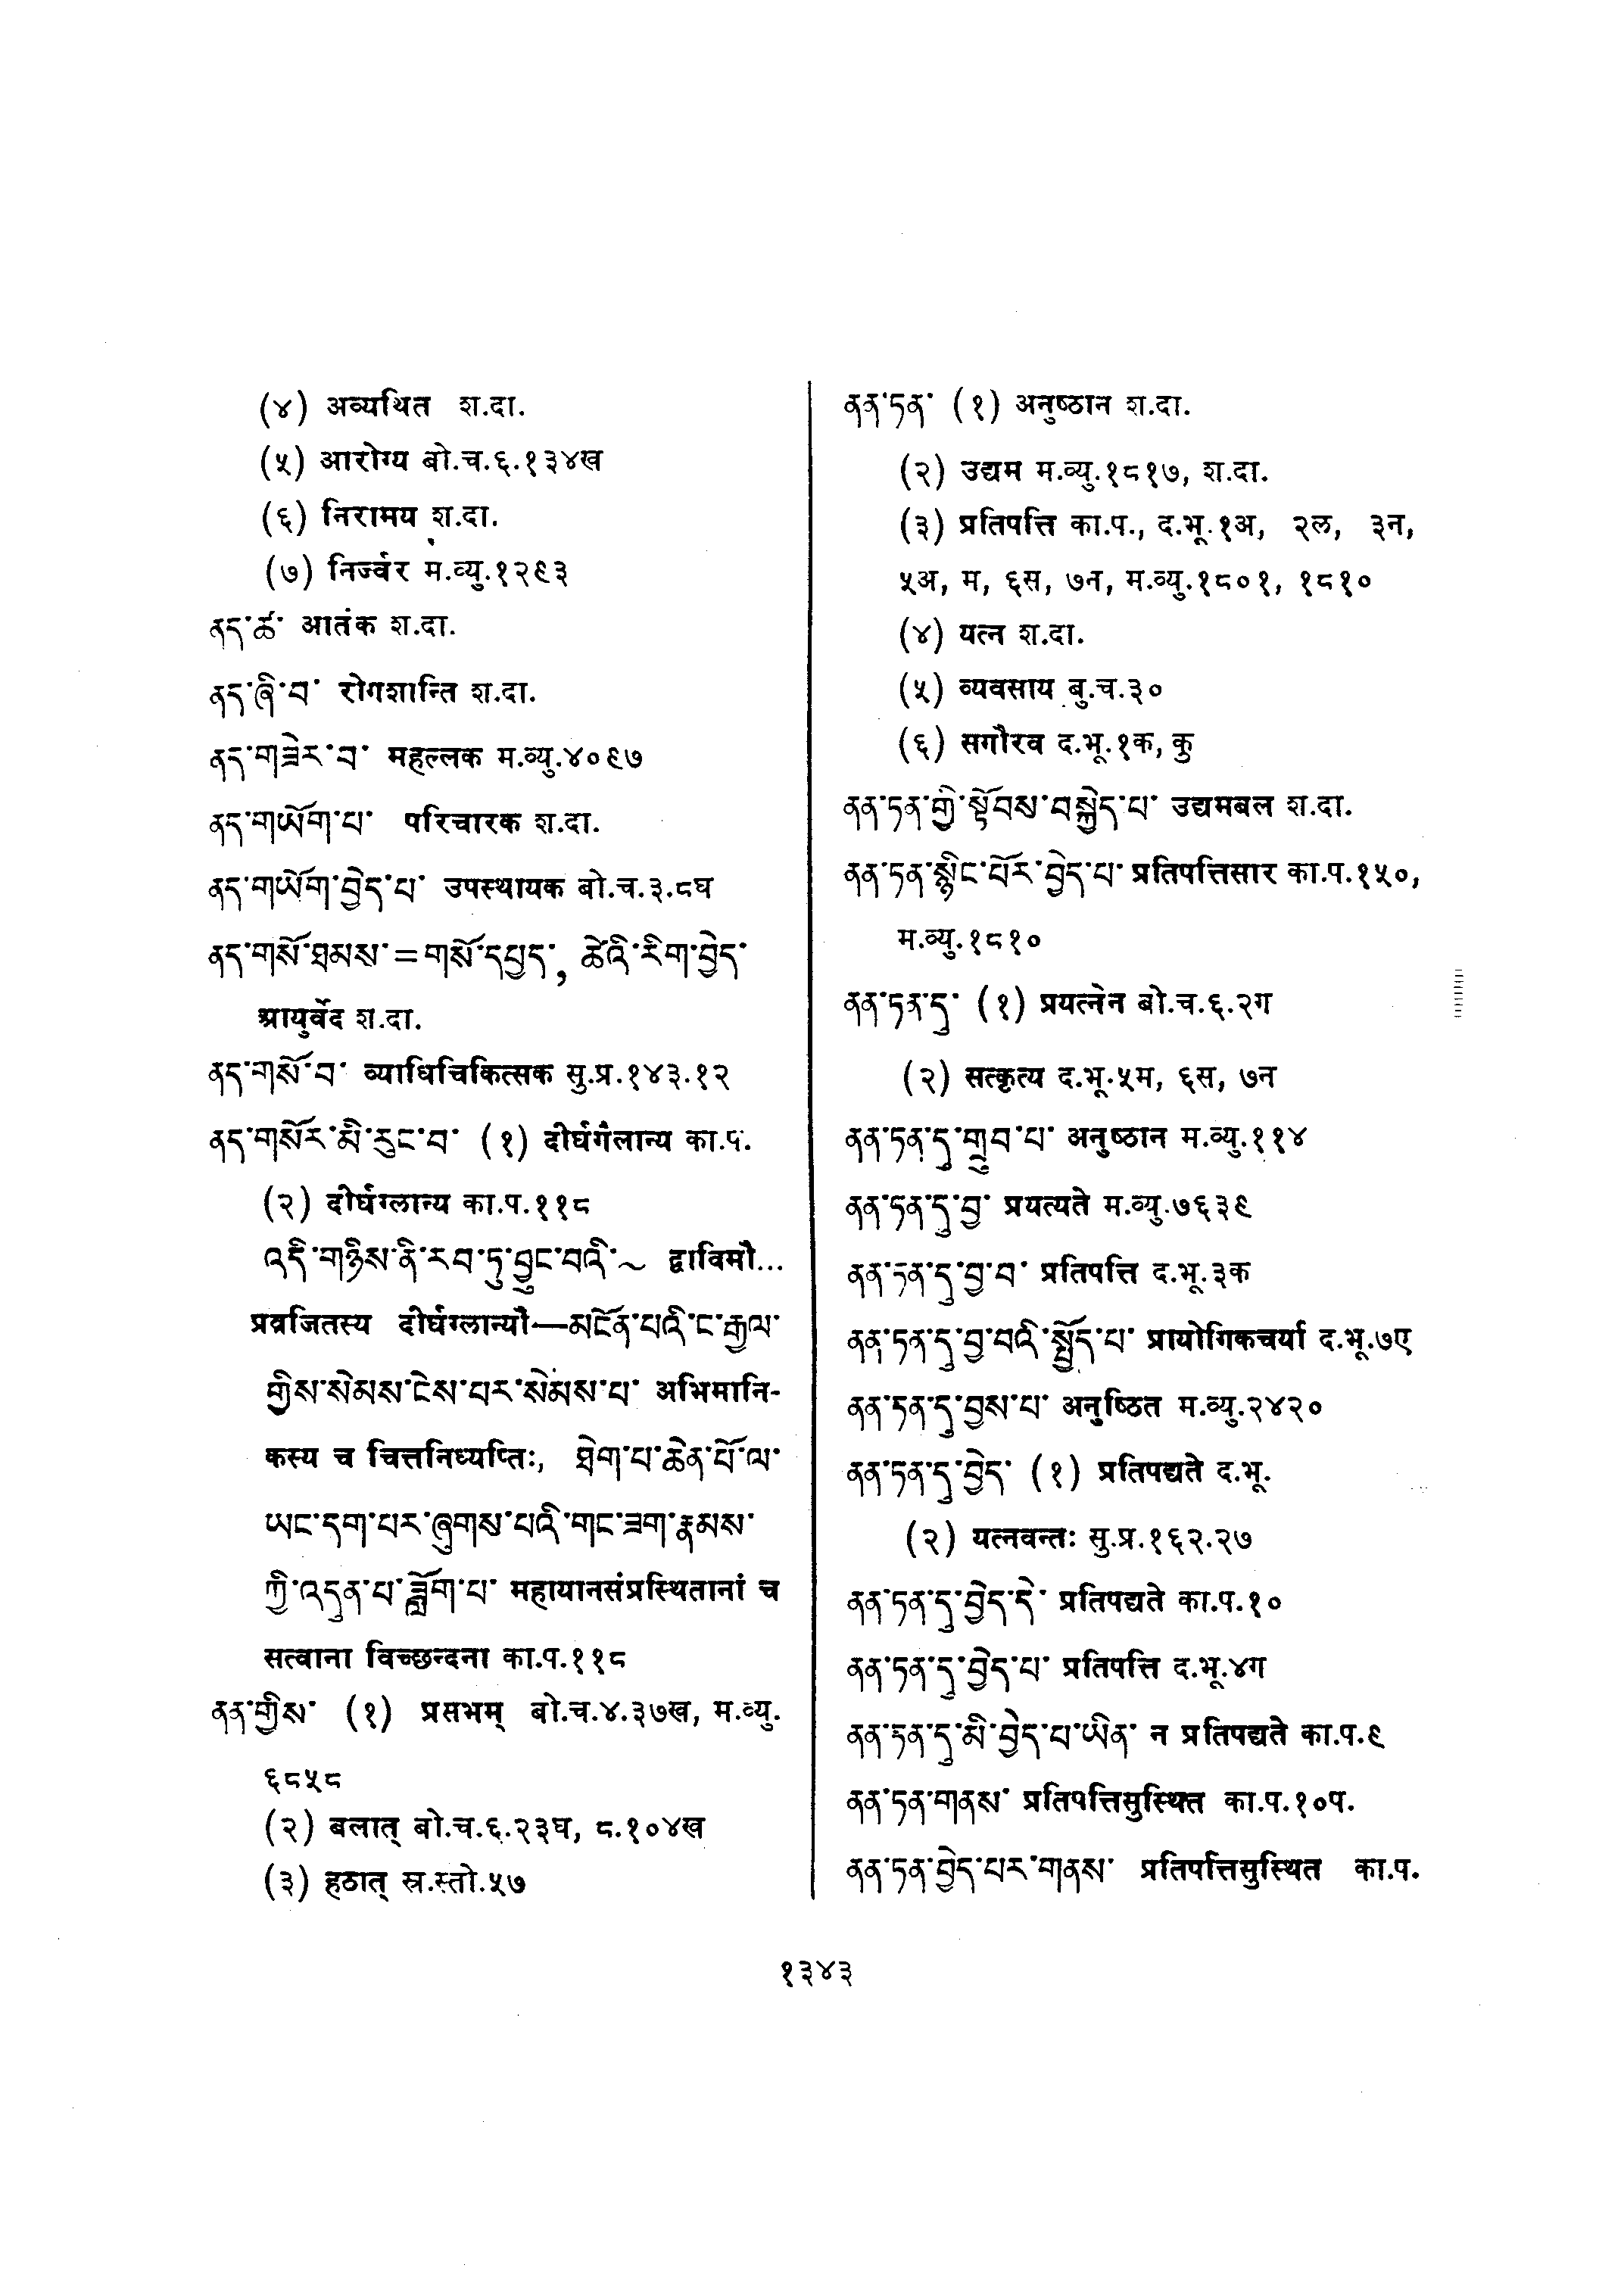 (४) अव्यथित श.दा.
(५) आरोग्य बो.च.६.१३४ख
(६) निरामय श.दा.
(७) निर्ज्वर म.व्यु.१२९३
ནད་ཚ་ आतंक श.दा.
ནད་ཞི་བ་ रोगशान्ति श.दा.
ནད་གཟེར་བ་ महल्लक म.व्यु.४०९७
ནད་གཡོག་པ་ परिचारक श.दा.
ནད་གཡོག་བྱེད་པ་ उपस्थायक बो.च.३.८घ
ནད་གསོ་ཐམས་=གསོ་དཔྱད་, ཚེའི་རིག་བྱེད་
श्रायुर्वेद श.दा.
ནད་གསོ་བ་ व्याधिचिकित्सक सु.प्र.१४३.१२
ནད་གསོར་མི་རུང་བ་ (१) दीर्घगैलान्य का.प.
(२) दीर्घग्लान्य का.प.११८
འདི་གཉིས་ནི་རབ་ཏུ་བྱུང་བའི་~ द्वाविमौ...
प्रव्रजितस्य दीर्घग्लान्यौ—མངོན་པའི་ང་རྒྱལ་
གྱིས་སེམས་ངེས་པར་སེམས་པ་ अभिमानि-
कस्य च चित्तनिध्यप्तिः, ཐེག་པ་ཆེན་པོ་ལ་
ཡང་དག་པར་ཞུགས་པའི་གང་ཟག་རྣམས་
ཀྱི་འདུན་པ་ཟློག་པ་ महायानसंप्रस्थितानां च
सत्वाना विच्छन्दना का.प.११८
ནན་གྱིས་ (१) प्रसभम् बो.च.४.३७ख, म.व्यु.
६८५८
(२) बलात् बो.च.६.२३घ, ८.१०४ख
(३) हठात् स्र.स्तो.५७
ནན་ཏན་ (१) अनुष्ठान श.दा.
(२) उद्यम म.व्यु.१८१७, श.दा.
(३) प्रतिपत्ति का.प., द.भू.१अ, २ल, ३न,
५अ, म, ६स, ७न, म.व्यु.१८०१, १८१०
(४) यत्न श.दा.
(५) व्यवसाय बु.च.३०
(६) सगौरव द.भू.१क, कु
ནན་ཏན་གྱི་སྟོབས་བསྐྱེད་པ་ उद्यमबल श.दा.
ནན་ཏན་སྙིང་པོར་བྱེད་པ་ प्रतिपत्तिसार का.प.१५०,
म.व्यु.१८१०
ནན་ཏན་དུ་ (१) प्रयत्नेन बो.च.६.२ग
(२) सत्कृत्य द.भू.५म, ६स, ७न
ནན་ཏན་དུ་གྲུབ་པ་ अनुष्ठान म.व्यु.११४
ནན་ཏན་དུ་བྱ་ प्रयत्यते म.व्यु.७६३९
ནན་ཏན་དུ་བྱ་བ་ प्रतिपत्ति द.भू.३क
ནན་ཏན་དུ་བྱ་བའི་སྤྱོད་པ་ प्रायोगिकचर्या द.भू.७ए
ནན་ཏན་དུ་བྱས་པ་ अनुष्ठित म.व्यु.२४२०
ནན་ཏན་དུ་བྱེད་ (१) प्रतिपद्यते द.भू.
(२) यत्नवन्तः सु.प्र.१६२.२७
ནན་ཏན་དུ་བྱེད་དེ་ प्रतिपद्यते का.प.१०
ནན་ཏན་དུ་བྱེད་པ་ प्रतिपत्ति द.भू.४ग
ནན་ཏན་དུ་མི་བྱེད་པ་ཡིན་ न प्रतिपद्यते का.प.९
ནན་ཏན་གནས་ प्रतिपत्तिसुस्थित का.प.१०प.
ནན་ཏན་བྱེད་པར་གནས་ प्रतिपत्तिसुस्थित का.प.
१३४३